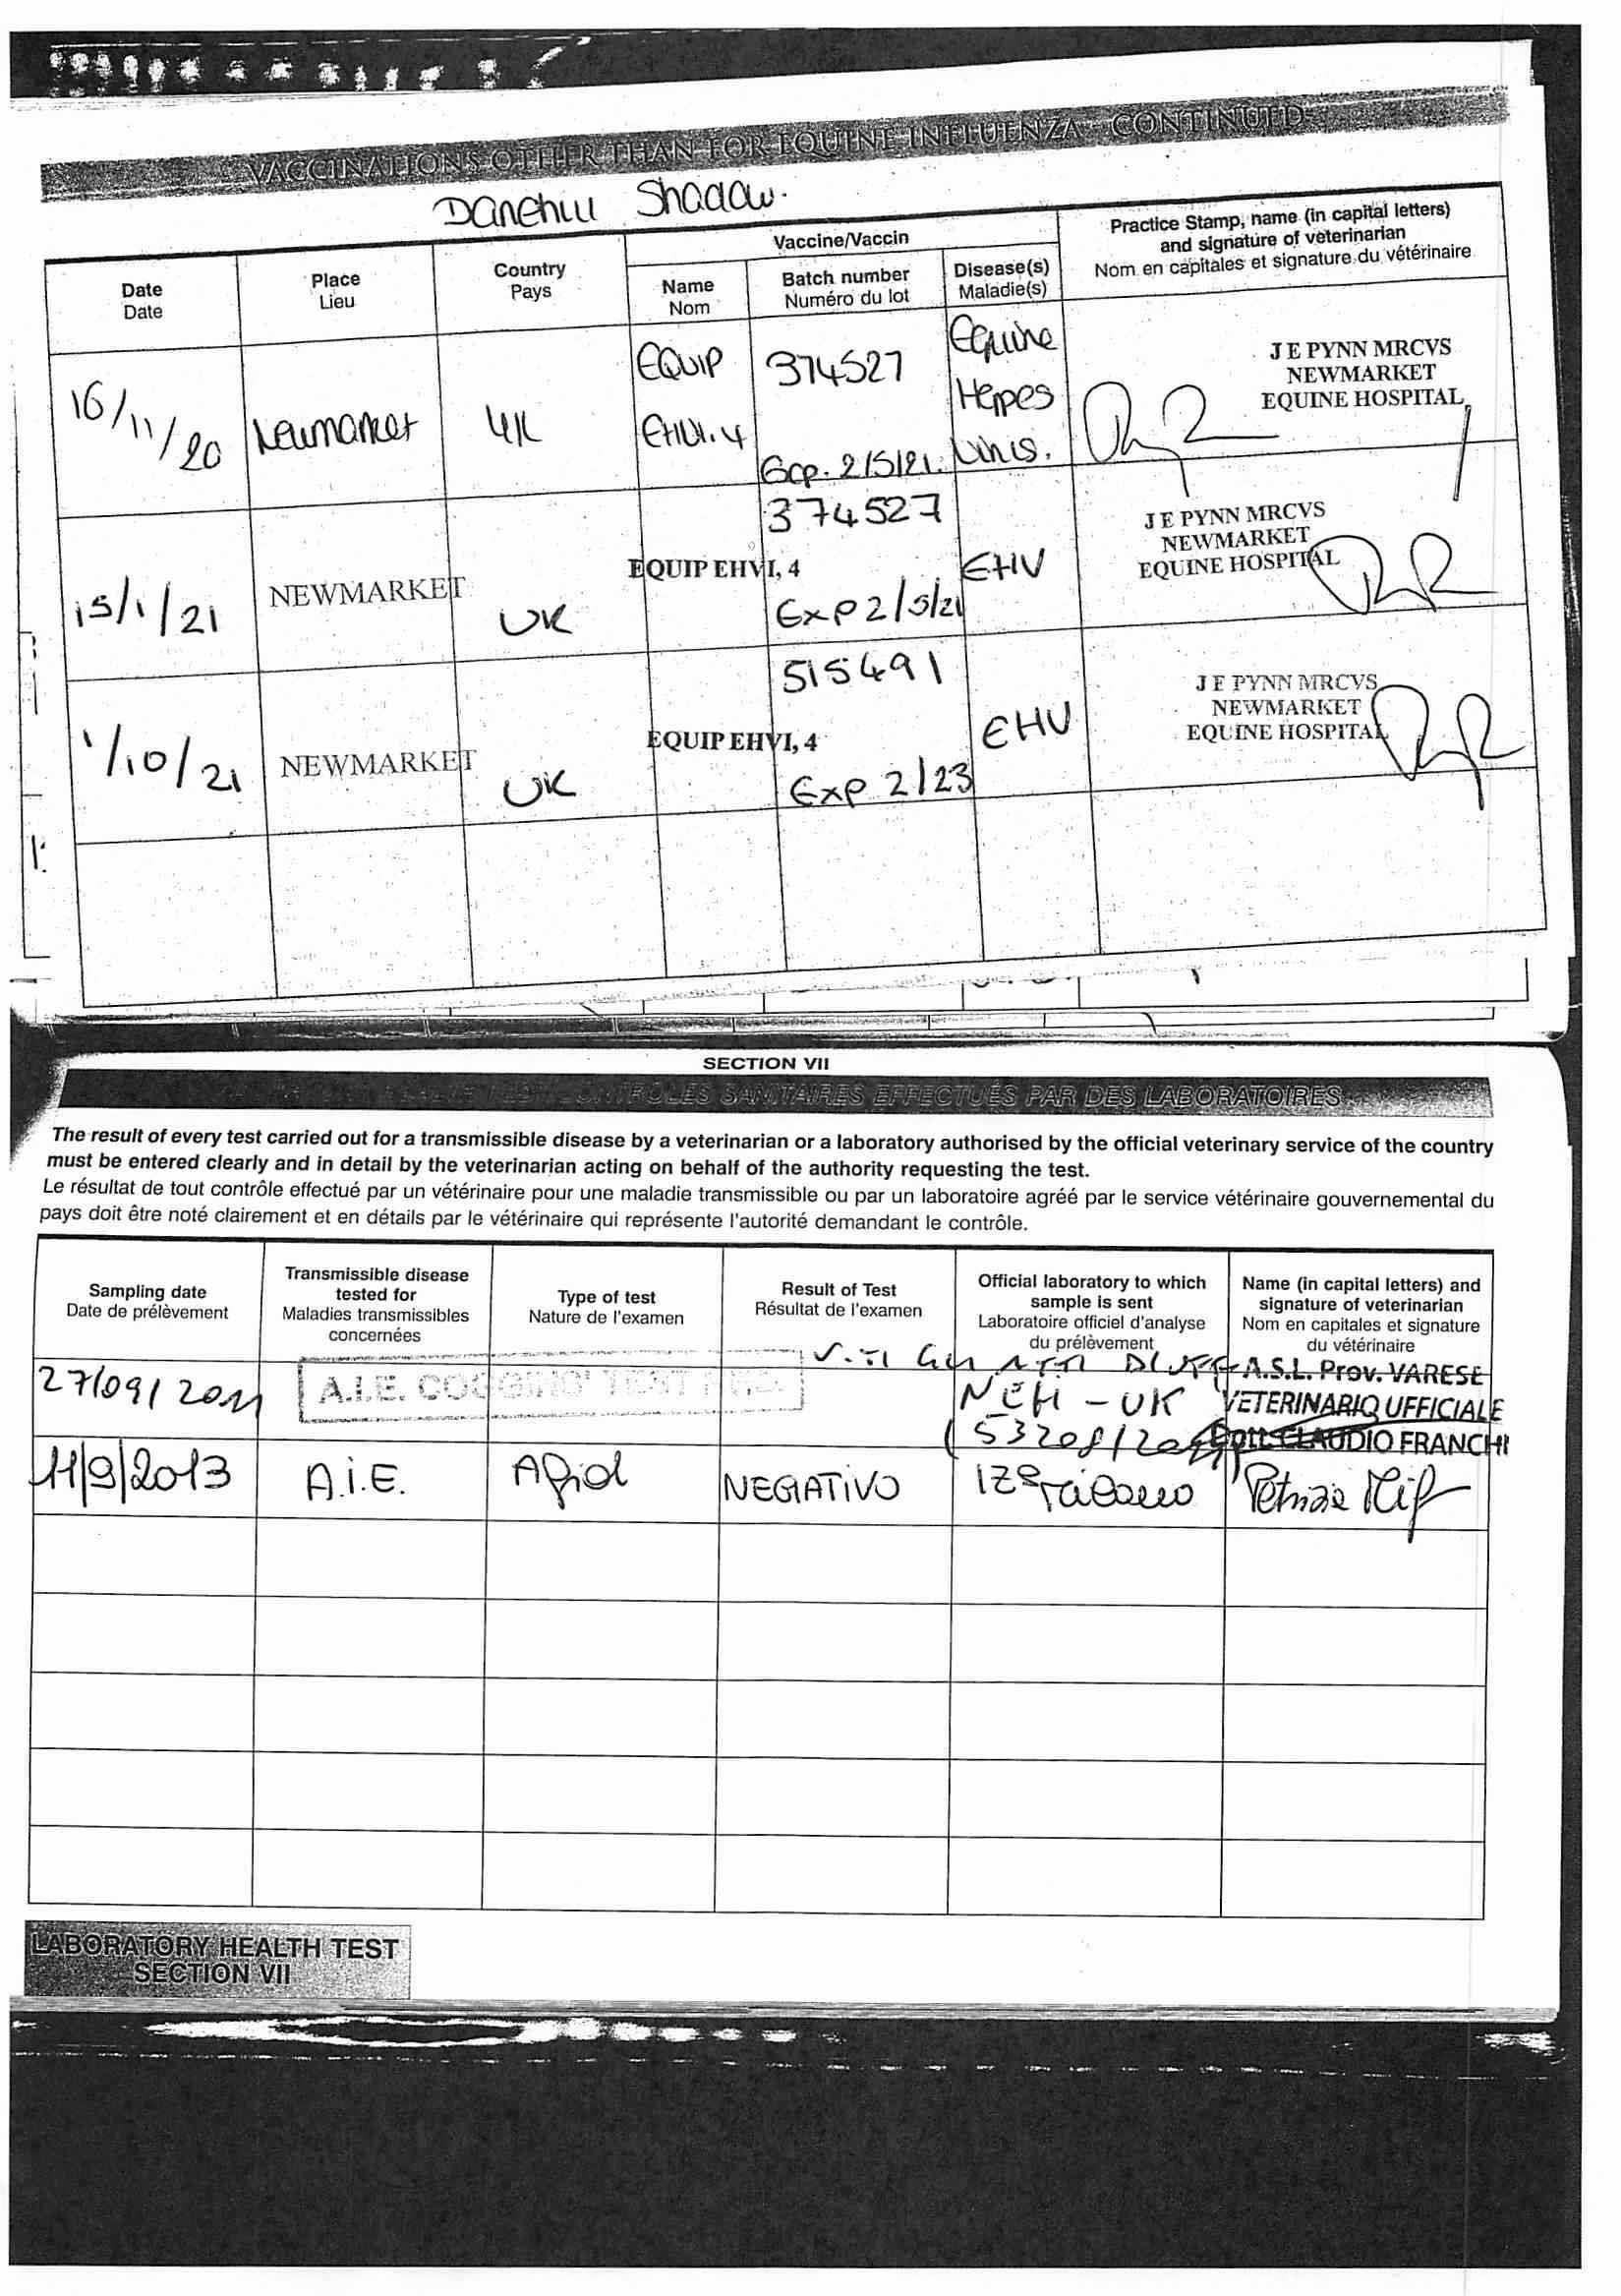 VACCINATIONS OTHER THAN FOR EQUINE INFLUENZA - CONTINUED
Danehill Shadow.
Date
Date
Place
Lieu
Country
Pays
Vaccine/Vaccin
Name
Nom
Batch number
Numéro du lot
Disease(s)
Maladie(s)
Practice Stamp, name (in capital letters)
and signature of veterinarian
Nom en capitales et signature du vétérinaire
16/11/20
Newmarket
UK
EQUIP
EHV1.4
374527
Exp. 2/5/21.
Equine
Herpes
Virus.
J E PYNN MRCVS
NEWMARKET
EQUINE HOSPITAL
15/1/21
NEWMARKET
UK
EQUIP EHV1, 4
374527
Exp 2/5/21
EHV
J E PYNN MRCVS
NEWMARKET
EQUINE HOSPITAL
1/10/21
NEWMARKET
UK
EQUIP EHV1, 4
515491
Exp 2/23
EHV
J E PYNN MRCVS
NEWMARKET
EQUINE HOSPITAL
SECTION VII
CONTRÔLES SANITAIRES EFFECTUÉS PAR DES LABORATOIRES
The result of every test carried out for a transmissible disease by a veterinarian or a laboratory authorised by the official veterinary service of the country
must be entered clearly and in detail by the veterinarian acting on behalf of the authority requesting the test.
Le résultat de tout contrôle effectué par un vétérinaire pour une maladie transmissible ou par un laboratoire agréé par le service vétérinaire gouvernemental du
pays doit être noté clairement et en détails par le vétérinaire qui représente l'autorité demandant le contrôle.
Sampling date
Date de prélèvement
Transmissible disease
tested for
Maladies transmissibles
concernées
Type of test
Nature de l'examen
Result of Test
Résultat de l'examen
Official laboratory to which
sample is sent
Laboratoire officiel d'analyse
du prélèvement
Name (in capital letters) and
signature of veterinarian
Nom en capitales et signature
du vétérinaire
27/09/2011
A.I.E. COGGINS' TEST
NEH - UK
A.S.L. Prov. VARESE
VETERINARIO UFFICIALE
Dott. CLAUDIO FRANCHI
11/9/2013
A.I.E.
NEGATIVO
LABORATORY HEALTH TEST
SECTION VII